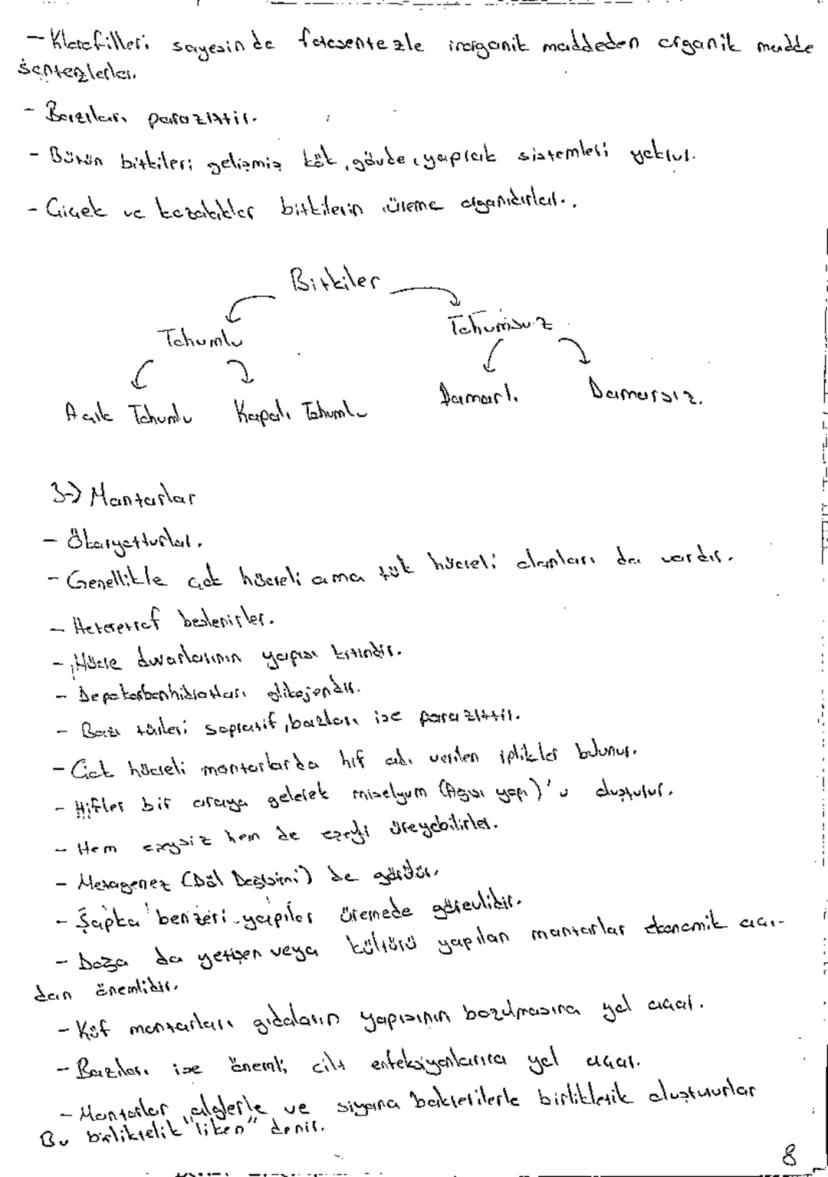 - Klorofilleri sayesinde fotosentezle inorganik maddeden organik madde
sentezlerler.
- Bazıları parazittir.
- Bütün bitkileri gelişmiş kök, gövde, yaprak sistemleri yoktur.
- Çiçek ve kozalaklar bitkilerin üreme organıdırlar.
Bitkiler
Tohumlu Tohumsuz
Açık Tohumlu Kapalı Tohumlu Damarlı Damarsız.
3-) Mantarlar
- Ökaryotturlar.
- Genellikle çok hücreli ama tek hücreli olanları da vardır.
- Heterotrof beslenirler.
- Hücre duvarlarının yapısı kitindir.
- Depo karbonhidratları glikojendir.
- Bazı türleri saprofit, bazıları ise parazittir.
- Çok hücreli mantarlarda hif adı verilen iplikler bulunur.
- Hifler bir araya gelerek miselyum (Ağsı yapı)'u oluşturur.
- Hem eşeysiz hem de eşeyli üreyebilirler.
- Metagenez (Döl Değişimi) de görülür.
- Şapka benzeri yapılar üremede görevlidir.
- Doğa da yetişen veya kültürü yapılan mantarlar ekonomik açı-
dan önemlidir.
- Küf mantarları gıdaların yapısının bozulmasına yol açar.
- Bazıları ise önemli cilt enfeksiyonlarına yol açar.
- Mantarlar alglerle ve siyano bakterilerle birliktelik oluştururlar
Bu birliktelik "liken" denir.
8